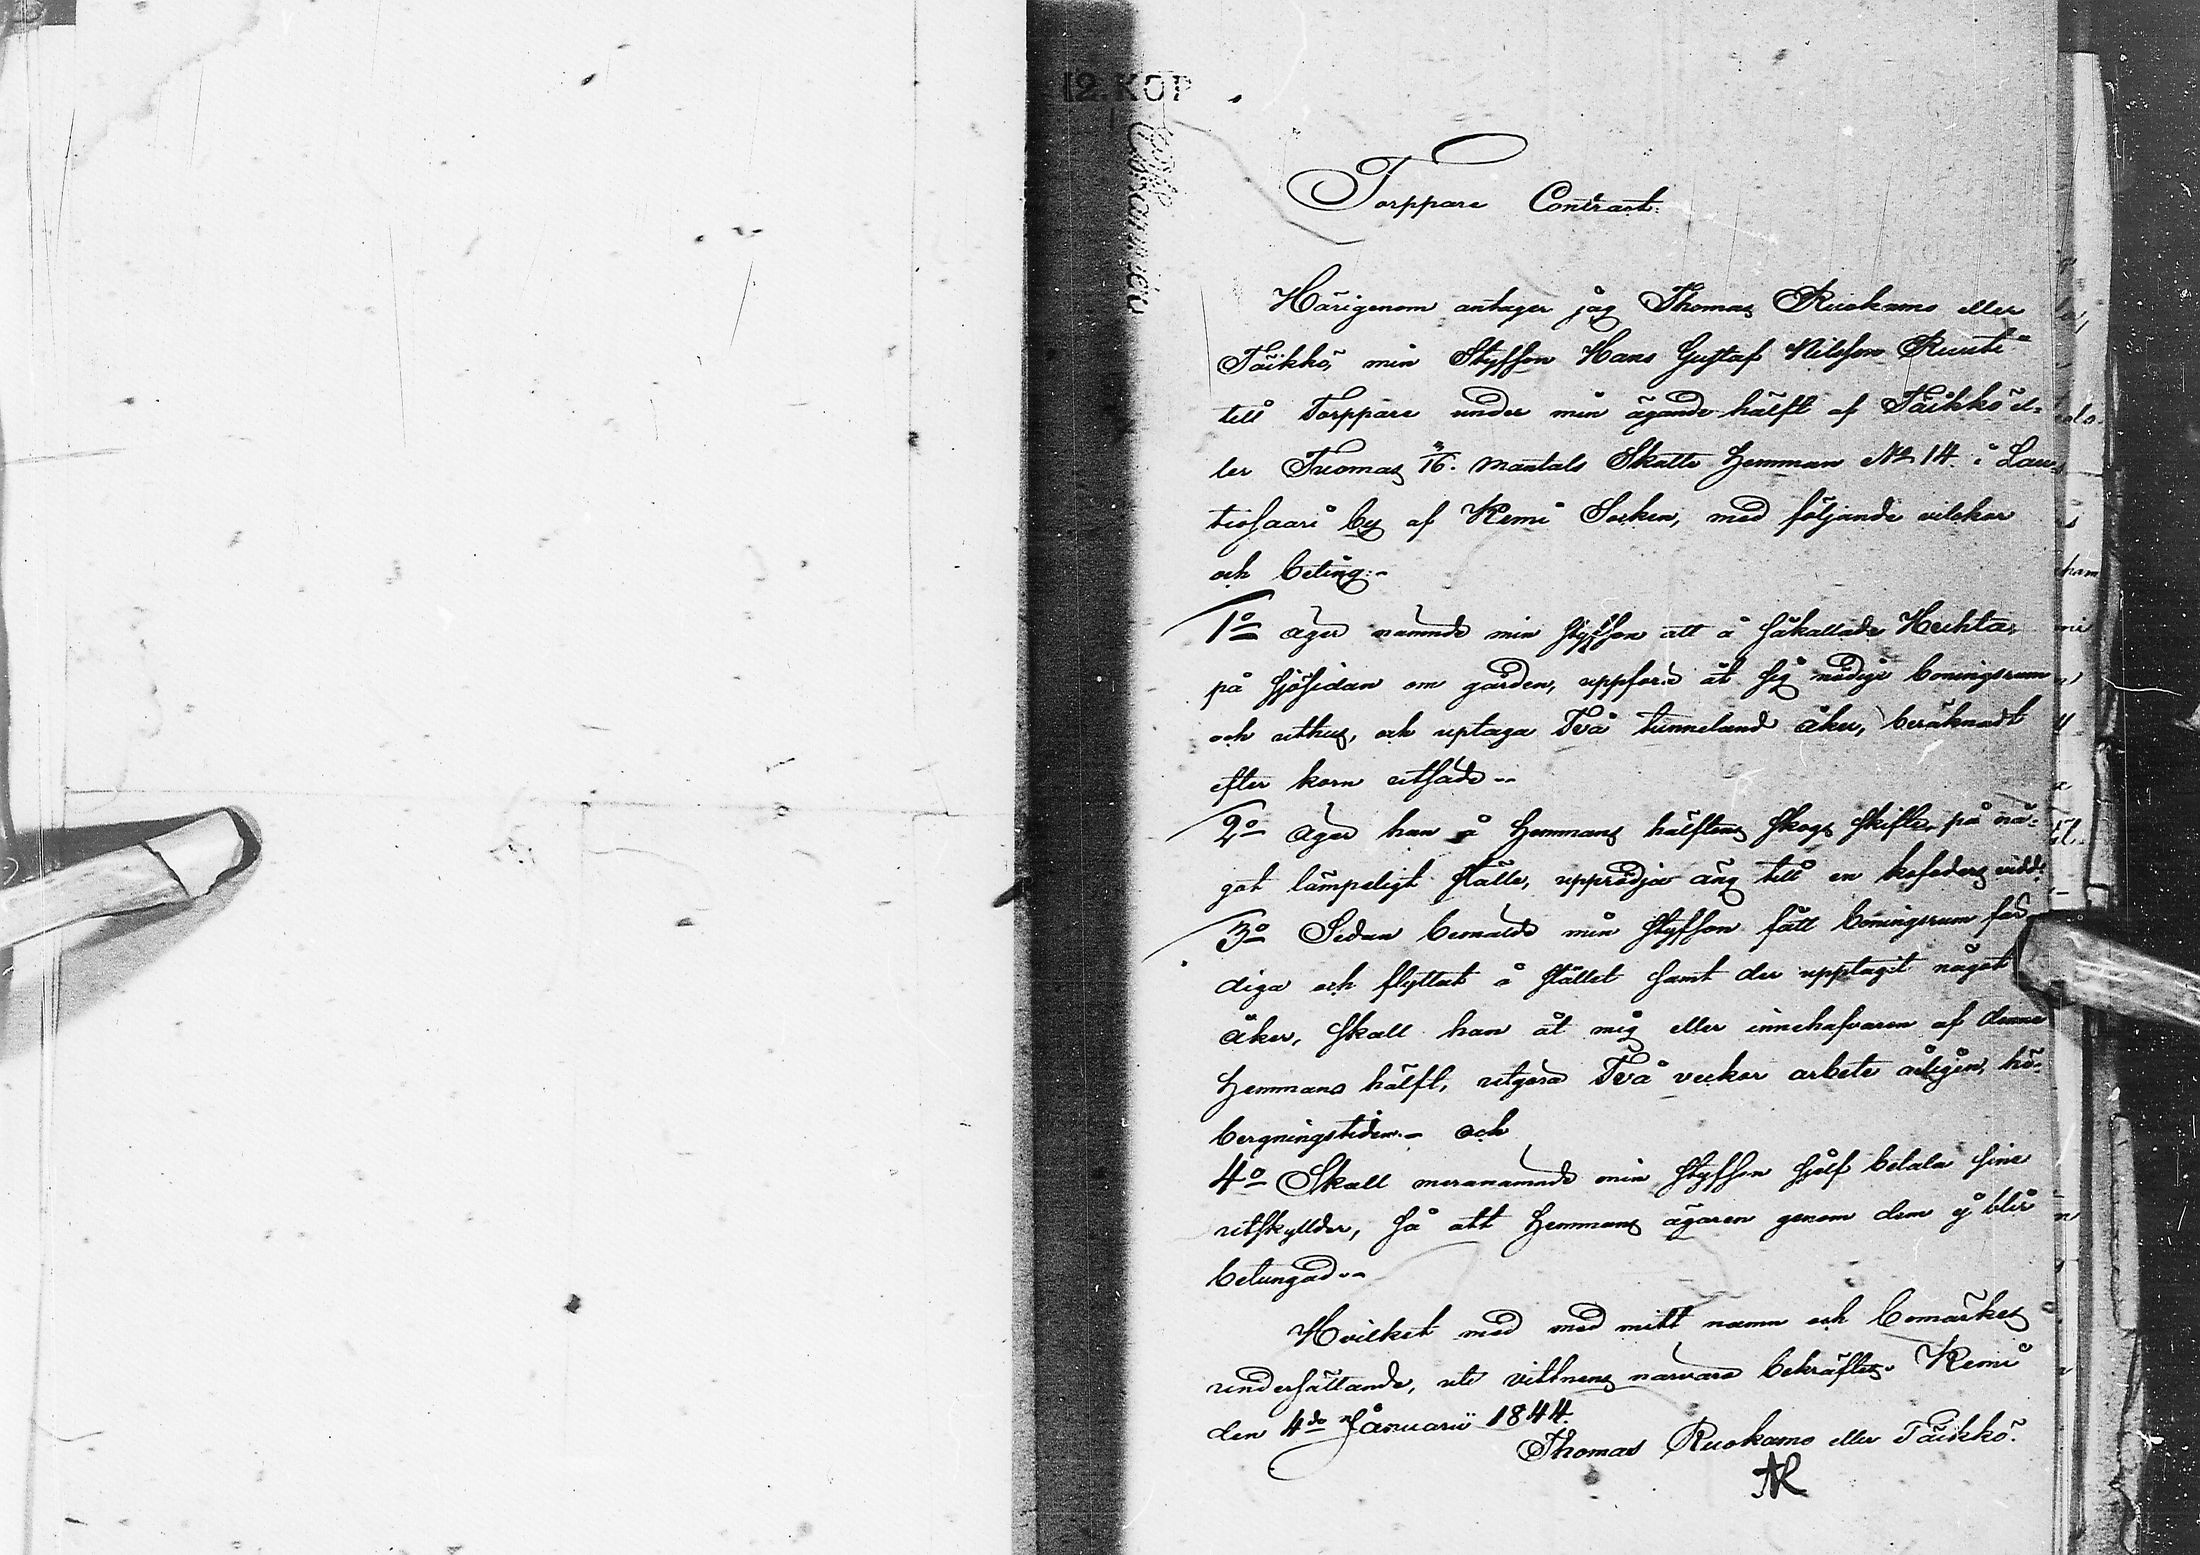 12. KOP
Torppare Contract.
Härigenom antager jag Thomas Ruokamo eller
Täikkö, min Styfson Hans Gustaf Nilsson Ruuti
till Torppare under min ägande hälft af Täikkö el-
ler Tuomas 3/16. mantals Skatte Hemman No 14. i Lau-
tiosaari by af Kemi Socken, med följande vilckor
och beting:-
1o äger nämnde min styfson att å såkallade Huhta,
på sjösidan om gården, uppföra åt sig nödige boningsrum
och uthus, och uptaga Två tunneland åker, beräknadt
efter korn utsäde--
2o äger han å Hemmans hälftens skogs skifte, på nå-
got lämpeligt ställe, upprödja äng till en kofoders vidd.
3o Sedan bemälde min styfson fått boningsrum fär-
diga och flyttat å stället samt der upptagit något
åker, skall han åt mig eller innehafvaren af denna
Hemmans hälft, utgöra Två veckor arbete årligen, hö-
bergningstiden.- och
4o Skall meranämnde min styfson sjelf betala sine
utskyllder, så att Hemmans ägaren genom dem ej blir
betungad--
Hvilket med med mitt namn och bomärkes
undersättande, uti vittnens närvaro bekräftes. Kemi
den 4de Januarii 1844.
Thomas Ruokamo eller Täikkö.